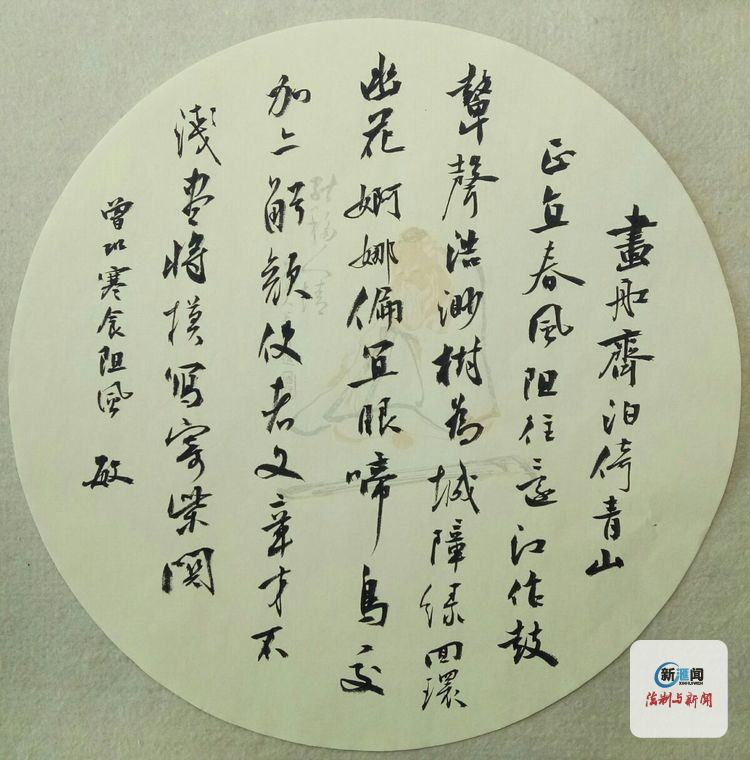 畫船齊泊倚青山
正直春風阻往還江作鼓
鼙聲浩渺樹為城障綠回環
幽花婀娜偏宜眼啼鳥交
加亦解顏使者文章才不
淺盡將模寫寄柴關
曾鞏寒食阻風 敏
新滙闻
XINHUIWEN
法制与新闻